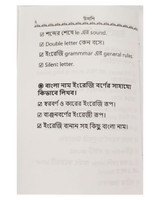 ☑ শব্দের শেষে le এর sound.
☑ Double letter কেন বসে।
☑ ইংরেজি grammmar এর general rules.
☑ Silent letter.
◈ বাংলা নাম ইংরেজি বর্ণের সাহায্যে
কিভাবে লিখব।
☑ স্বরবর্ণ ও কারের ইংরেজি রূপ।
☑ ব্যঞ্জনবর্ণের ইংরেজী রূপ।
☑ ইংরেজি বানান সহ কিছু বাংলা নাম।